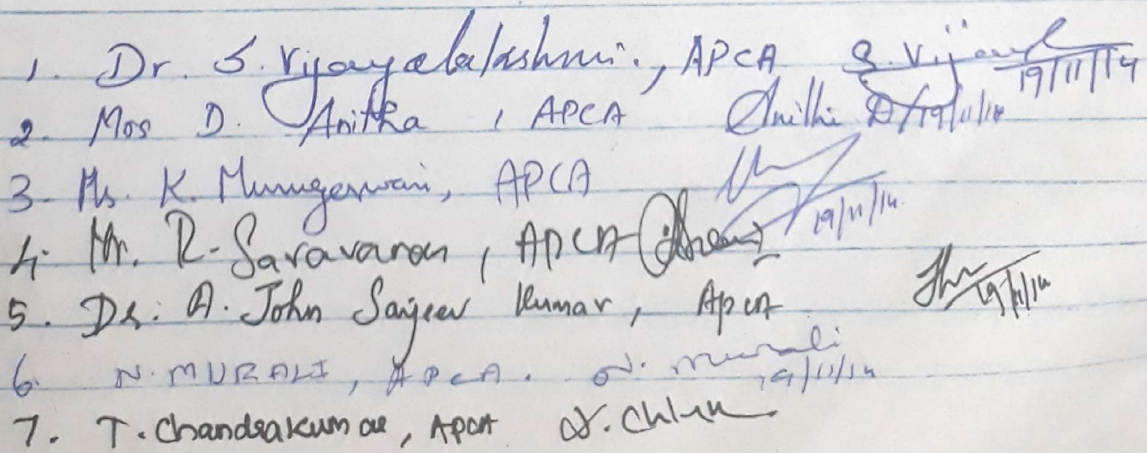 1. Dr. S. Vijayalakshmi., APCA S. Vijayl 19/11/14
2. Mos D. Anitha , APCA Anithi D 19/11/14
3. Ms. K. Murugeswari, APCA 19/11/14
4. Mr. R. Saravanan, APCA
5. Dr. A. John Sanjeev Kumar, APCA 19/11/14
6. N. MURALI, APCA. N. Murali 19/11/14
7. T. Chandrakumar, APCA